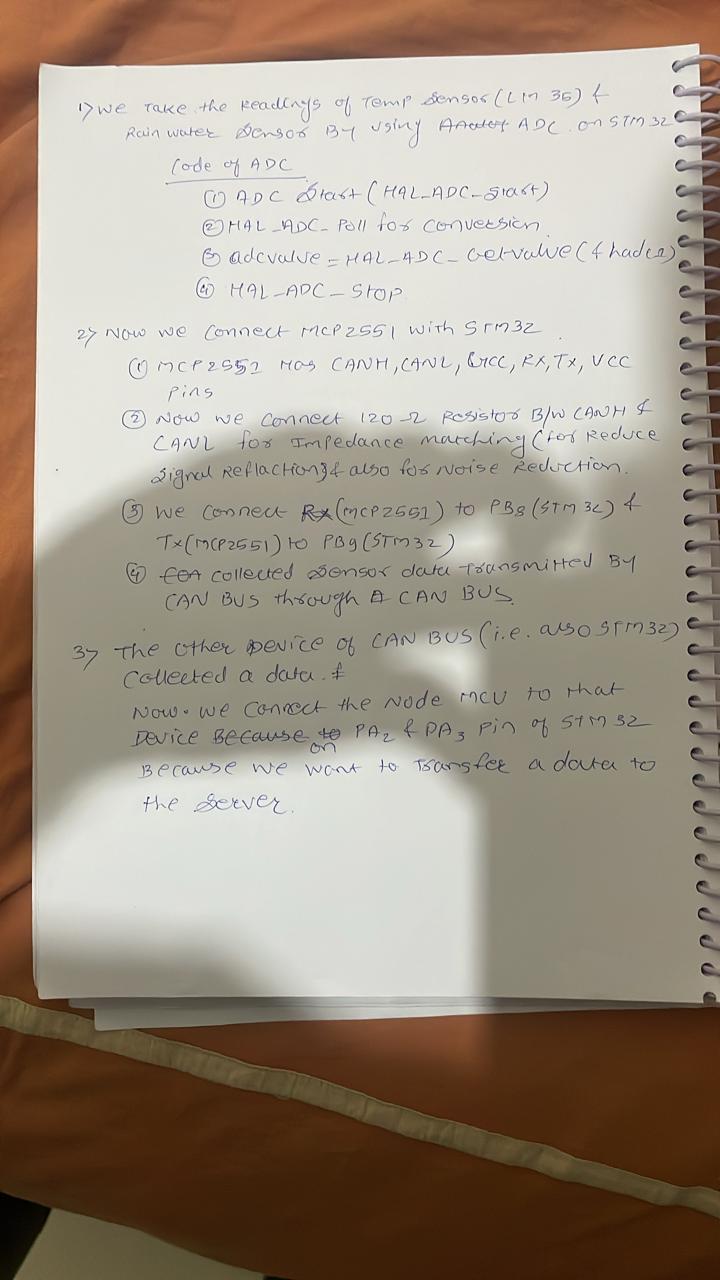 1) We Take the Readings of Temp Sensor (LM 35) &
Rain water Sensor By using ADC on STM32
Code of ADC
① ADC Start (HAL_ADC_Start)
② HAL_ADC_Poll for conversion
③ adcvalue = HAL_ADC_Getvalue (&hadc1)
④ HAL_ADC_STOP
2) Now we connect MCP2551 with STM32
① MCP2551 Has CANH, CANL, VCC, RX, TX, VCC
Pins
② Now we connect 120 Ω Resistor B/W CANH &
CANL for Impedance matching (for Reduce
Signal Reflaction) & also for Noise Reduction.
③ We connect Rx (MCP2551) to PB8 (STM32) &
Tx (MCP2551) to PB9 (STM32)
④ collected Sensor data Transmitted By
CAN BUS through A CAN BUS.
3) The other Device of CAN BUS (i.e. also STM32)
Collected a data. &
Now we connect the Node MCU to that
Device Because to PA2 & PA3 Pin of STM32
on
Because we want to Transfer a data to
the Server.